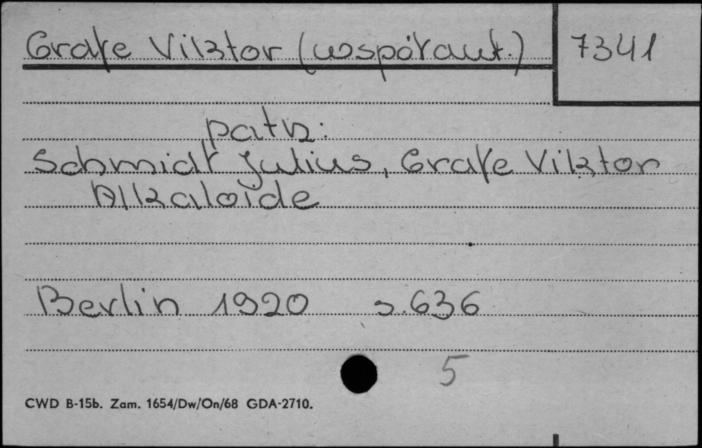 Grafe Viktor (współaut.) 7341
patrz:
Schmidt Julius, Grafe Viktor
Alkaloide
Berlin 1920 s.636
5
CWD B-15b. Zam. 1654/Dw/On/68 GDA-2710.